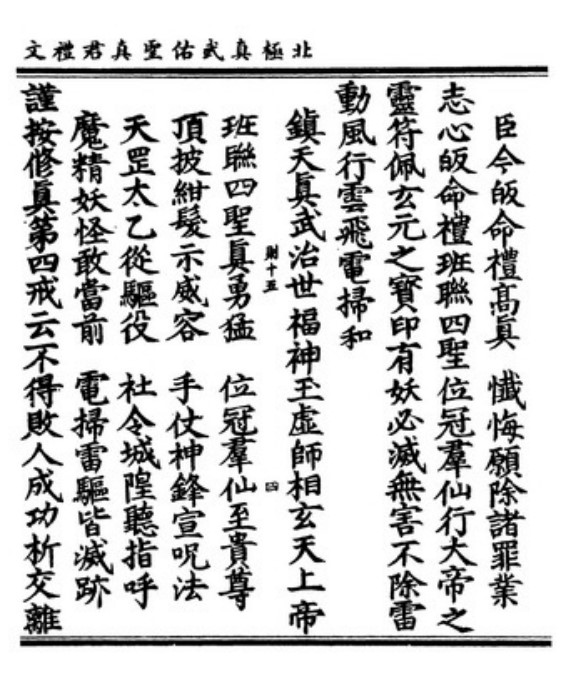 北極真武佑聖真君禮文
臣今皈命禮髙眞　懺悔願除諸罪業
志心皈命禮班聯四聖位冠羣仙行大帝之
靈符佩玄元之寶印有妖必滅無害不除雷
動風行雲飛電掃和
鎮天眞武治世福神玉虛師相玄天上帝
財十五　四
班聯四聖眞勇猛　位冠羣仙至貴尊
頂披紺髮示威容　手仗神鋒宣呪法
天罡太乙從驅役　社令城隍聽指呼
魔精妖怪敢當前　電掃雷驅皆滅跡
謹按修眞第四戒云不得敗人成功析交離